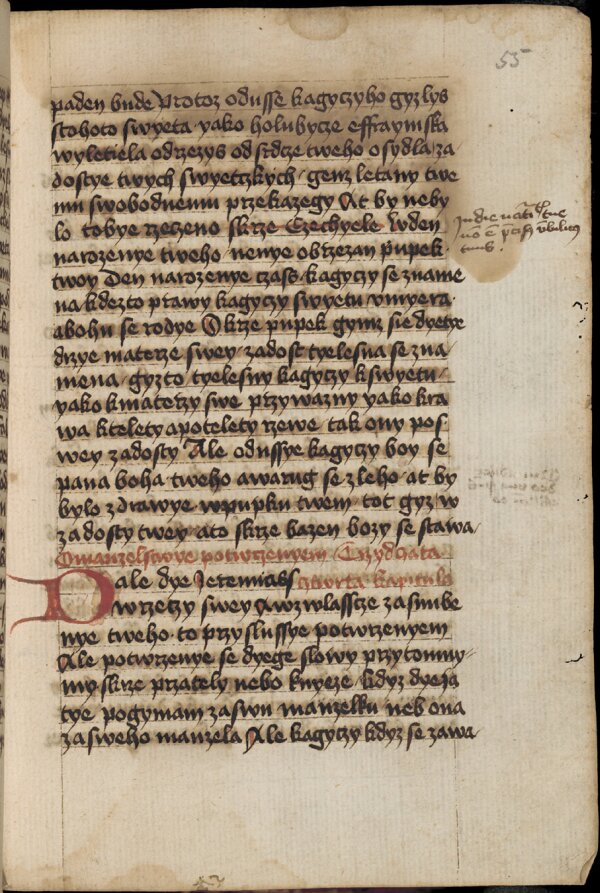 55
paden bude Protoz odusse kagyczyho gyz lys
stohoto swyeta yako holubycze effraymska
wyletiela odrzezys od srdcze tweho osydla za
dostye twych swyetzkych genz letany twe
mu swobodnemu przekazegy At by neby
lo tobye rzeczeno skrze Ezechyele W den
narozenye tweho nenye obrzezan pupek
twoy Den narozenye czass kagyczy se zname
na kdezto prawy kagyczy swyetu vmyera
abohu se rodye Skrze pupek gymz sie dyetye
drzye materze swey zadost tyelesna se zna
mena gyzto tyelesny kagyczy kswyetu
yako kmaterzy swe przywazny yako kra
wa ktelety apo telety rzewe tak ony pos
wey zadosty Ale odussye kagyczy boy se
pana boha tweho awarug se zleho at by
bylo zdrawye wpupku twem tot gyz w
zadosty twey ato skrze bazen bozy se stawa
Omanzelstwye potwrzenyem Trzydczata
Dale dye Jeremiass cztwrta kapitula
wrzeczy swey Awzwlasscze zasnube
nye tweho to przyslussye potwrzenyem
Ale potwrzenye se dyege slowy przytomny
my skrze przately nebo knyeze kdyz dyegi
tye pogymam zaswu manzelku neb ona
zasweho manzela Ale kagyczy kdyz se zawa